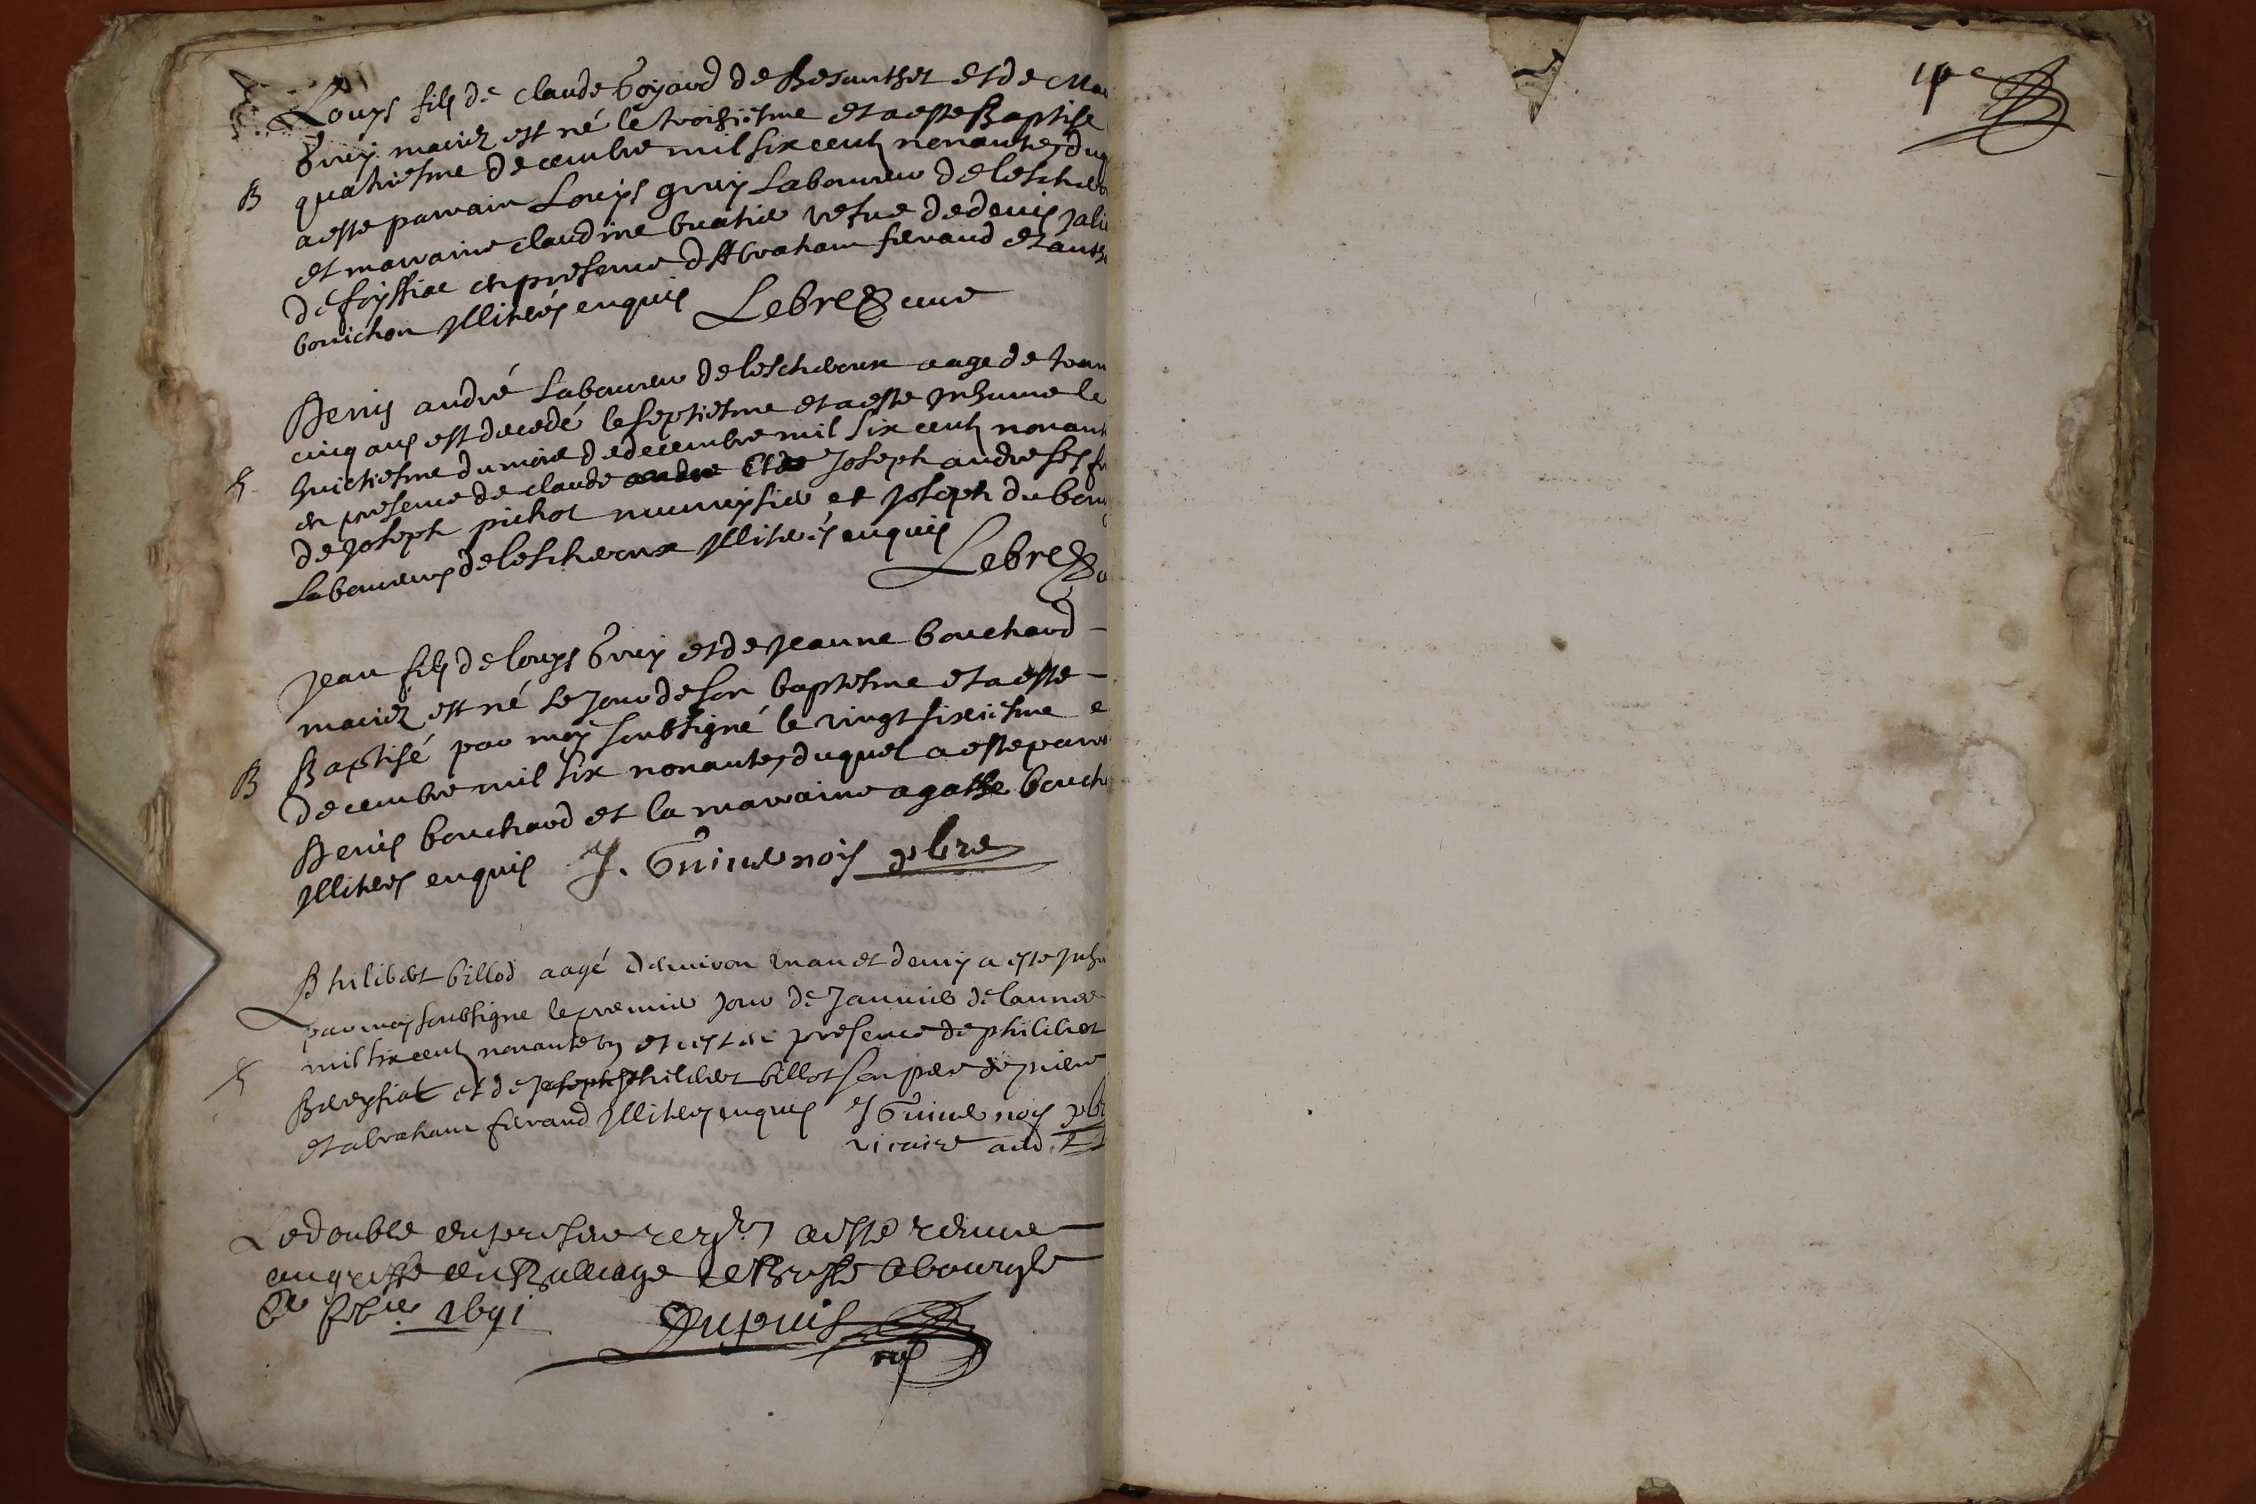 Louys fils de claude Goyard de Besanthet et de Mar
Gruy mariez est né le troisiesme et a esté Baptisé
B quatriesme decembre mil six cents nonante, duq
a esté parrain Louys gruy Laboureur de lescher
et marraine claudine buatier vefue de denis Jali
de foissiac en presence d'Abraham fieraud et anth
bonichon Illiterés enquis Lebre cure
Denis andré Laboureur de lescheroux aage de tran
cinq ans est decedé le septiesme et a esté Inhumé le
huictiesme du mois de decembre mil six cents nonant
en presence de claude andre et de Joseph andre ses
de Joseph pichot et Joseph du
Laboureurs de lescheroux Illiterés enquis
Lebre
Jean fils de louys Gruy et de Jeanne bouchard
mariez est né le Jour de son baptesme et a esté
B Baptisé par moy soubsigné le vingt sixiesme
decembre mil six nonante, duquel a esté parr
Denis bouchard et la marraine agathe bouch
Illiterés enquis J. pbre
Philibert billod aagé d'enuiron un an et demy a esté Inhu
par moy soubsigne le premier Jour de Januier de l'annee
mil six cents nonante un et c'est en presence de philibert
et de Joseph philibert billot son pere
et abraham fieraud Illiterés enquis J pb
vicaire aud.
Le double du present a esté remis
au greffe du Balliage de Bresse a bourg le
1691
Dupuis